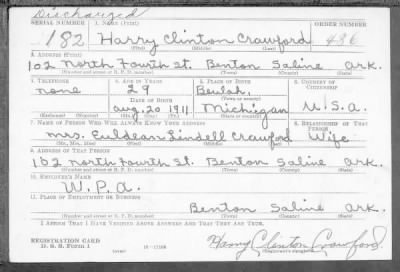 Discharged
SERIAL NUMBER 1. NAME (Print) ORDER NUMBER
182 Harry Clinton Crawford 436
(First) (Middle) (Last)
2. ADDRESS (Print)
102 North Fourth St. Benton Saline Ark.
(Number and street or R. F. D. number) (Town) (County) (State)
3. TELEPHONE 4. AGE IN YEARS 5. PLACE OF BIRTH 6. COUNTRY OF CITIZENSHIP
none 29 Beulah,
DATE OF BIRTH (Town or county)
Aug 20 1911 Michigan U.S.A.
(Exchange) (Number) (Mo.) (Day) (Yr.) (State or country)
7. NAME OF PERSON WHO WILL ALWAYS KNOW YOUR ADDRESS 8. RELATIONSHIP OF THAT PERSON
Mrs. Euldean Lindell Crawford Wife
(Mr., Mrs., Miss) (First) (Middle) (Last)
9. ADDRESS OF THAT PERSON
102 North Fourth St. Benton Saline Ark.
(Number and street or R. F. D. number) (Town) (County) (State)
10. EMPLOYER'S NAME
W.P.A.
11. PLACE OF EMPLOYMENT OR BUSINESS
Benton Saline Ark.
(Number and street or R. F. D. number) (Town) (County) (State)
I AFFIRM THAT I HAVE VERIFIED ABOVE ANSWERS AND THAT THEY ARE TRUE.
REGISTRATION CARD
D. S. S. Form 1
Harry Clinton Crawford.
(Registrant's signature)